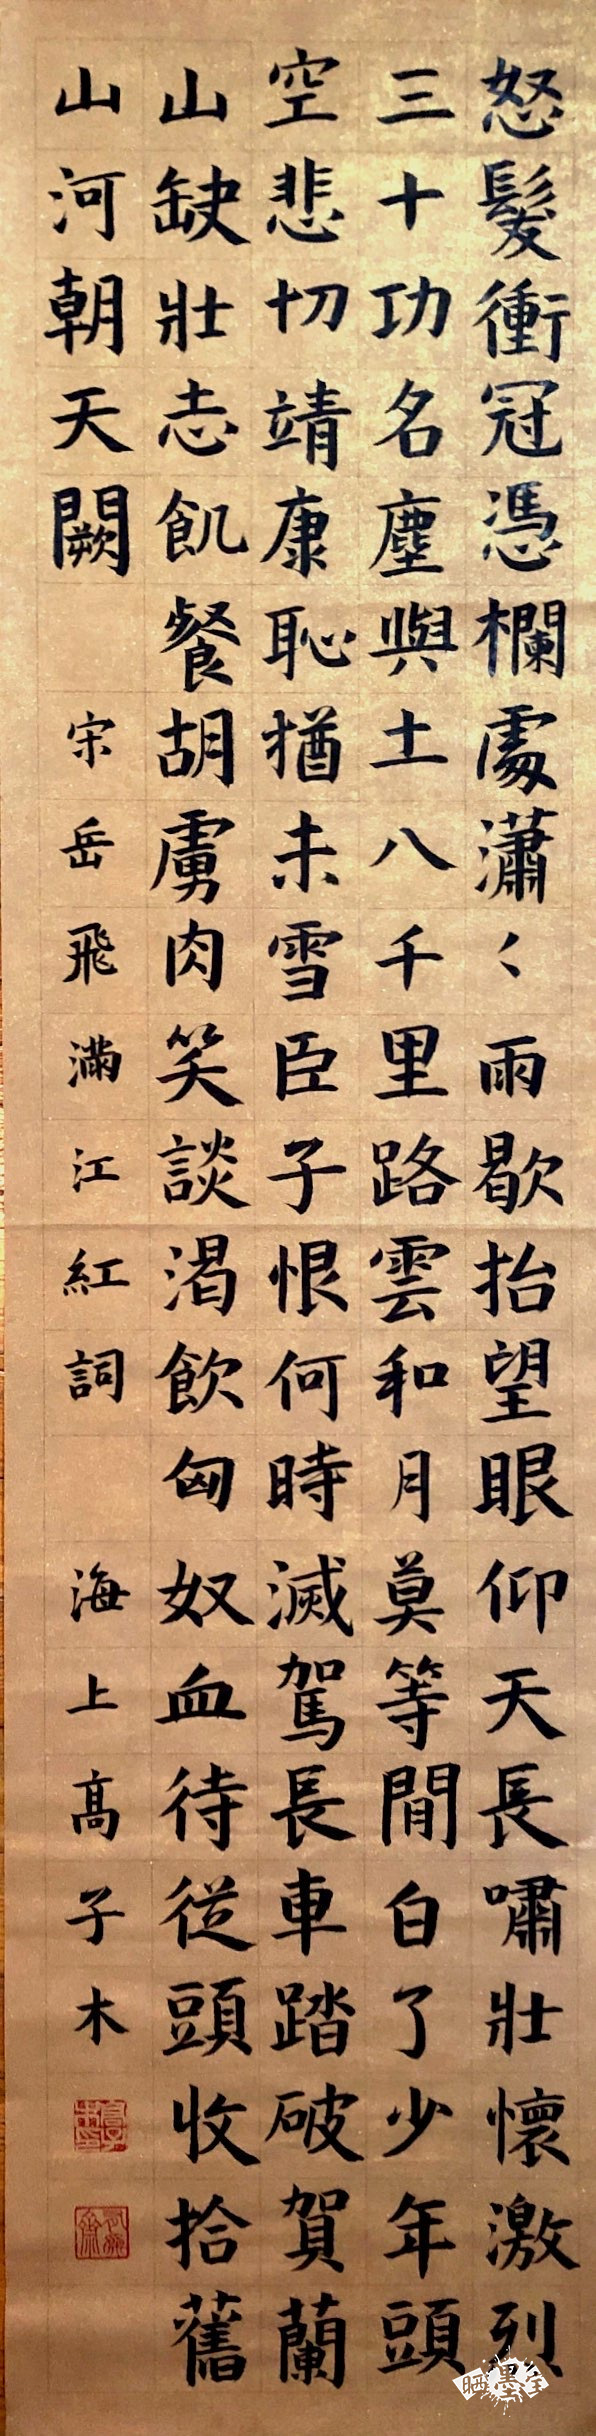 怒髮衝冠憑欄處瀟〻雨歇抬望眼仰天長嘯壯懷激烈
三十功名塵與土八千里路雲和月莫等閒白了少年頭
空悲切靖康恥猶未雪臣子恨何時滅駕長車踏破賀蘭
山缺壯志飢餐胡虜肉笑談渴飲匈奴血待從頭收拾舊
山河朝天闕 宋岳飛滿江紅詞 海上髙子木